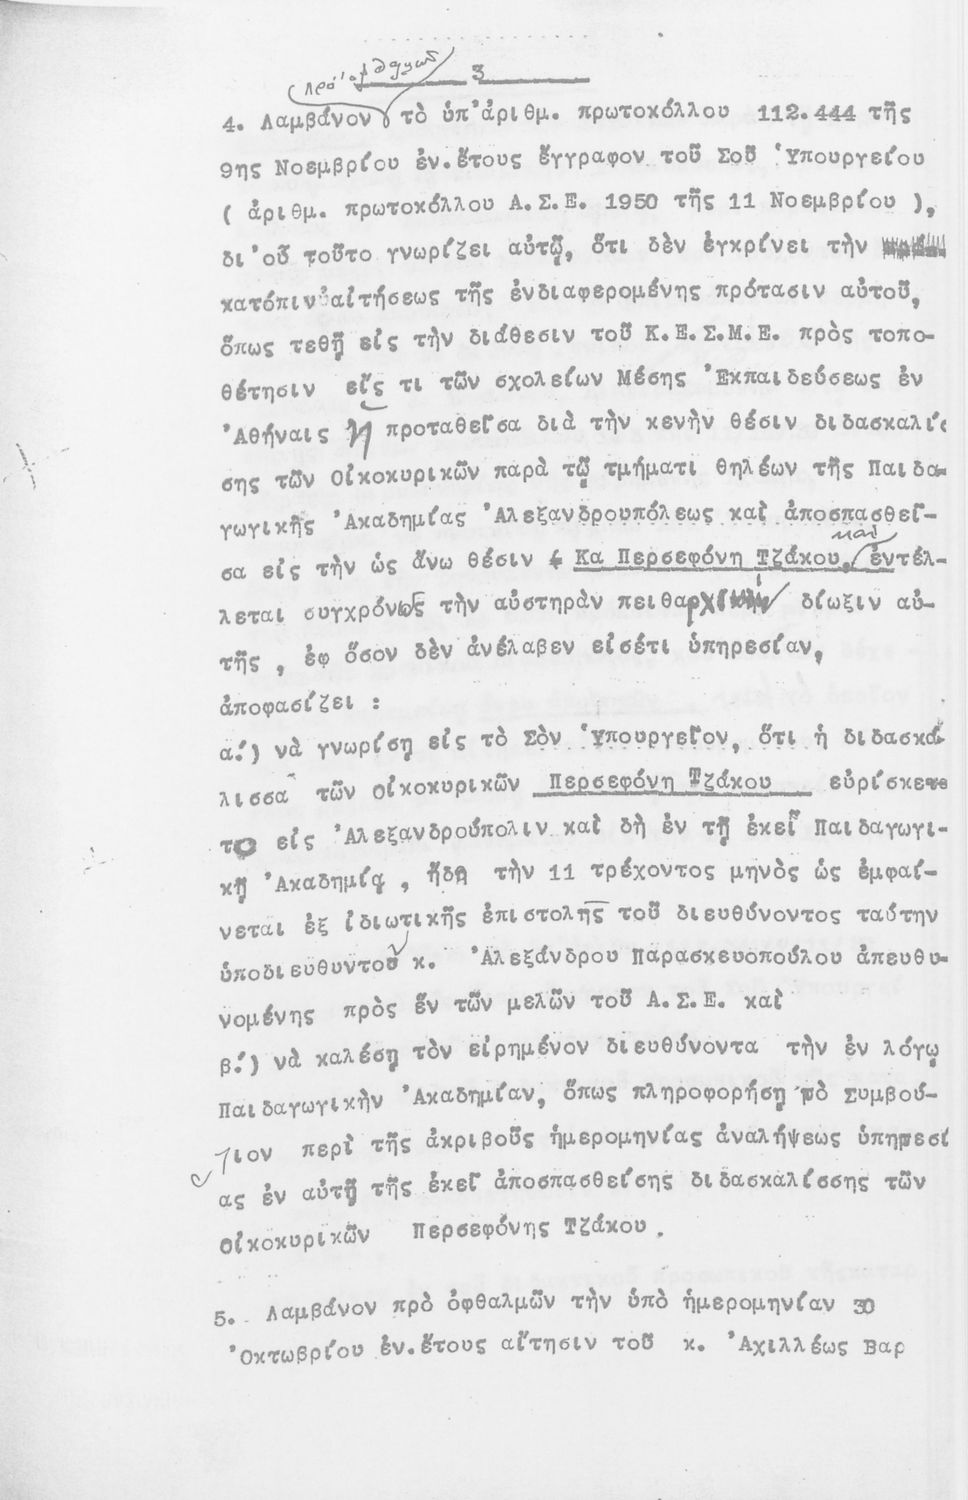 3
πρὸ ὀφθαλμῶν
4. Λαμβάνον τὸ ὑπ'ἀριθμ. πρωτοκόλλου 112.444 τῆς
9ης Νοεμβρίου ἐν.ἔτους ἔγγραφον τοῦ Σοῦ Ὑπουργείου
( ἀριθμ. πρωτοκόλλου Α.Σ.Ε. 1950 τῆς 11 Νοεμβρίου ),
δι'οὗ τοῦτο γνωρίζει αὐτῷ, ὅτι δὲν ἐγκρίνει τὴν
κατόπιν αἰτήσεως τῆς ἐνδιαφερομένης πρότασιν αὐτοῦ,
ὅπως τεθῇ εἰς τὴν διάθεσιν τοῦ Κ.Ε.Σ.Μ.Ε. πρὸς τοπο-
θέτησιν εἴς τι τῶν σχολείων Μέσης Ἐκπαιδεύσεως ἐν
Ἀθήναις ἡ προταθεῖσα διὰ τὴν κενὴν θέσιν διδασκαλίσ
σης τῶν Οἰκοκυρικῶν παρὰ τῷ τμήματι θηλέων τῆς Παιδα-
γωγικῆς Ἀκαδημίας Ἀλεξανδρουπόλεως καὶ ἀποσπασθεῖ-
σα εἰς τὴν ὡς ἄνω θέσιν Κα Περσεφόνη Τζάκου, καὶ ἐντέλ-
λεται συγχρόνως τὴν αὐστηρὰν πειθαρχικὴν δίωξιν αὐ-
τῆς , ἐφ ὅσον δὲν ἀνέλαβεν εἰσέτι ὑπηρεσίαν,
ἀποφασίζει :
α.) νὰ γνωρίσῃ εἰς τὸ Σὸν Ὑπουργεῖον, ὅτι ἡ διδασκά-
λισσα τῶν Οἰκοκυρικῶν Περσεφόνη Τζάκου εὑρίσκε
το εἰς Ἀλεξανδρούπολιν καὶ δὴ ἐν τῇ ἐκεῖ Παιδαγωγι-
κῇ Ἀκαδημίᾳ , ἤδη τὴν 11 τρέχοντος μηνὸς ὡς ἐμφαί-
νεται ἐξ ἰδιωτικῆς ἐπιστολῆς τοῦ διευθύνοντος ταύτην
ὑποδιευθυντοῦ κ. Ἀλεξάνδρου Παρασκευοπούλου ἀπευθυ-
νομένης πρὸς ἓν τῶν μελῶν τοῦ Α.Σ.Ε. καὶ
β.) νὰ καλέσῃ τὸν εἰρημένον διευθύνοντα τὴν ἐν λόγῳ
Παιδαγωγικὴν Ἀκαδημίαν, ὅπως πληροφορήσῃ τὸ Συμβού-
λιον περὶ τῆς ἀκριβοῦς ἡμερομηνίας ἀναλήψεως ὑπηρεσί
ας ἐν αὐτῇ τῆς ἐκεῖ ἀποσπασθείσης διδασκαλίσσης τῶν
Οἰκοκυρικῶν Περσεφόνης Τζάκου .
5. Λαμβάνον πρὸ ὀφθαλμῶν τὴν ὑπὸ ἡμερομηνίαν 30
Ὀκτωβρίου ἐν.ἔτους αἴτησιν τοῦ κ. Ἀχιλλέως Βαρ